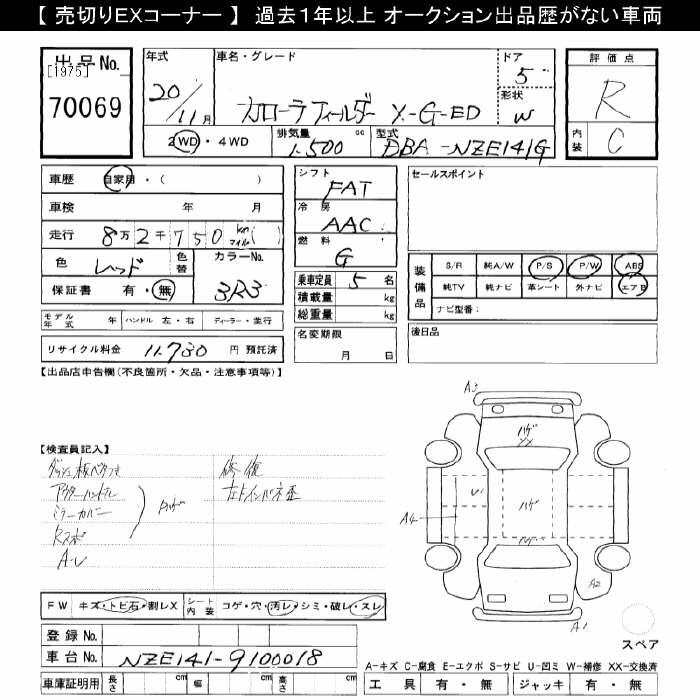 【 売切りEXコーナー 】 過去１年以上 オークション出品歴がない車両
出品No.
[1975]
70069
年式
20/11月
車名・グレード
カローラフィールダー X-G-ED
ドア
5
形状
W
2WD・4WD
排気量 cc
1.500
型式
DBA-NZE141G
評価点
R
内装
C
車歴 自家用・( )
車検 年 月
走行 8万2千750 km マイル( )
色 レッド 色替
カラーNo.
3R3
保証書 有・無
モデル年式 年 ハンドル 左・右 ディーラー・並行
リサイクル料金 11.780 円 預託済
シフト
FAT
冷房
AAC
燃料
G
乗車定員 5 名
積載量 kg
総重量 kg
名変期限
月 日
セールスポイント
装備品
S/R 純A/W P/S P/W ABS
純TV 純ナビ 革シート 外ナビ エアB
ナビ型番：
後日品
【出品店申告欄(不良箇所・欠品・注意事項等)】
【検査員記入】
ダッシュ板ベタつき
アウターハンドル
ミラーカバー
Rスポ
A-U
修復
左トインパネ歪
A3
ハゲ
XX
U
ハゲ
ハゲ
A4
A2
A1
スペア
FW キズ・トビ石・割レX
シート内装 コゲ・穴・汚レ・シミ・破レ・スレ
登録 No.
車台 No. NZE141-9100018
車庫証明用 長さ cm 幅 cm 高さ cm
A-キズ C-腐食 E-エクボ S-サビ U-凹ミ W-補修 XX-交換済
工具 有・無 ジャッキ 有・無